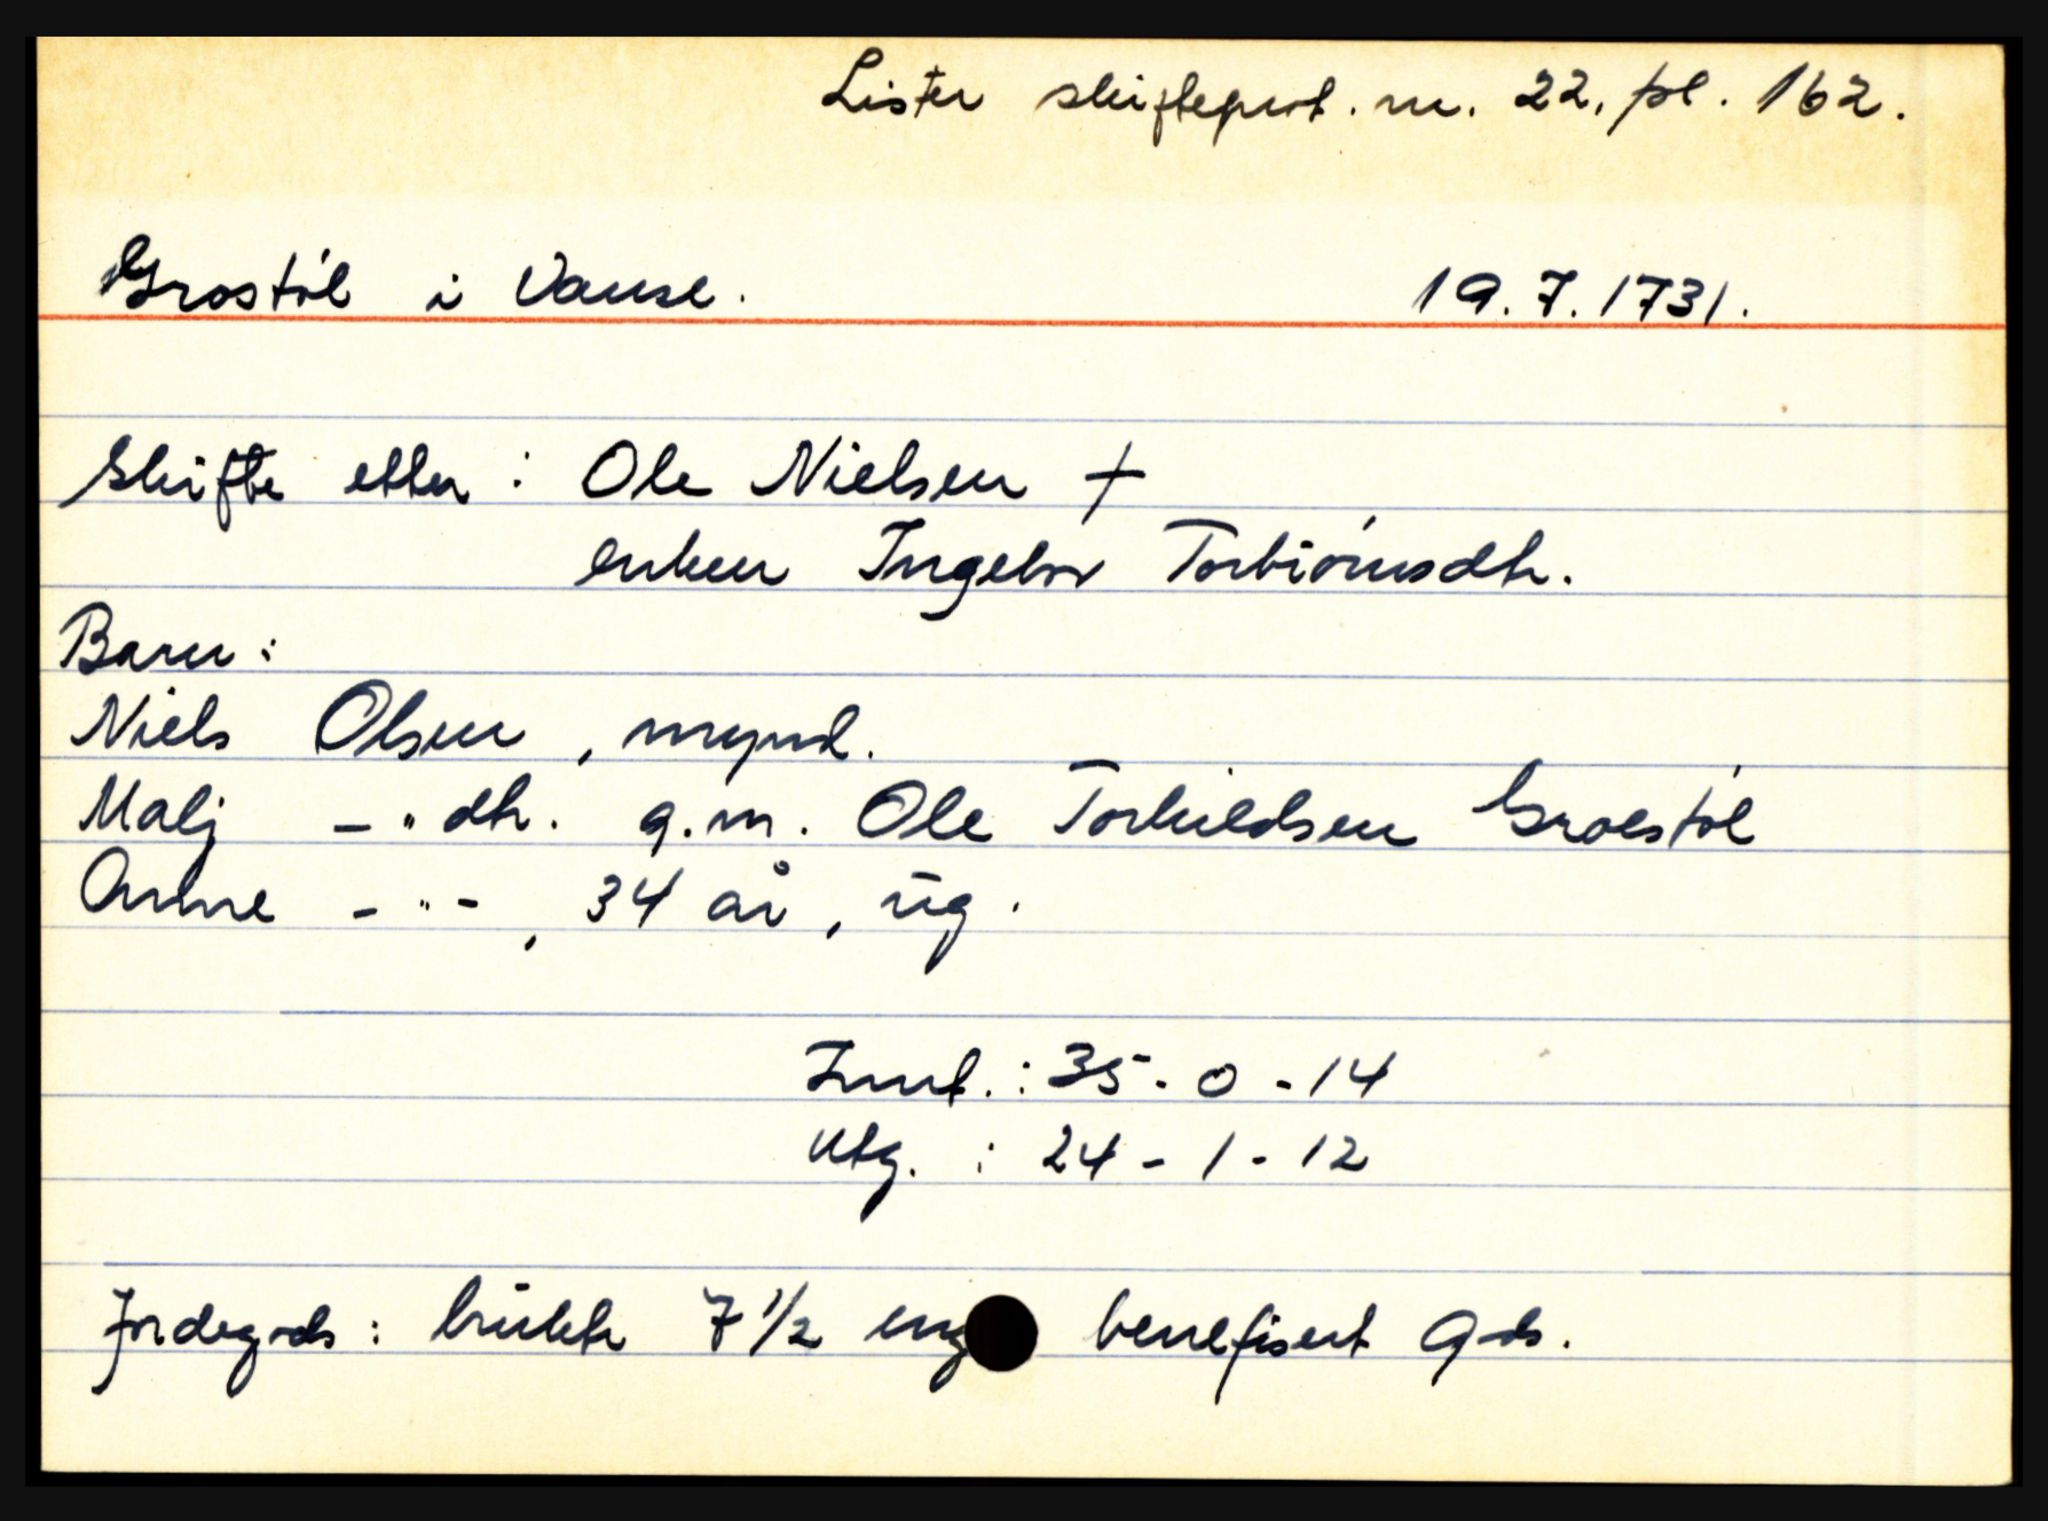 Lister skifteprot. nr. 22, pl. 162.
Grostøl i Vanse. 19.7.1731.
Skifte etter: Ole Nielsen †
enken Ingebor Torbiørnsdtr.
Barn:
Niels Olsen, mynd.
Malj - " dtr. g.m. Ole Torkildsen Groestøl
Anne - " -, 34 år, ug.
Innt.: 35 - 0 - 14
Utg. : 24 - 1 - 12
Jordegods: brukte 7 1/2 eng benefisert gods.